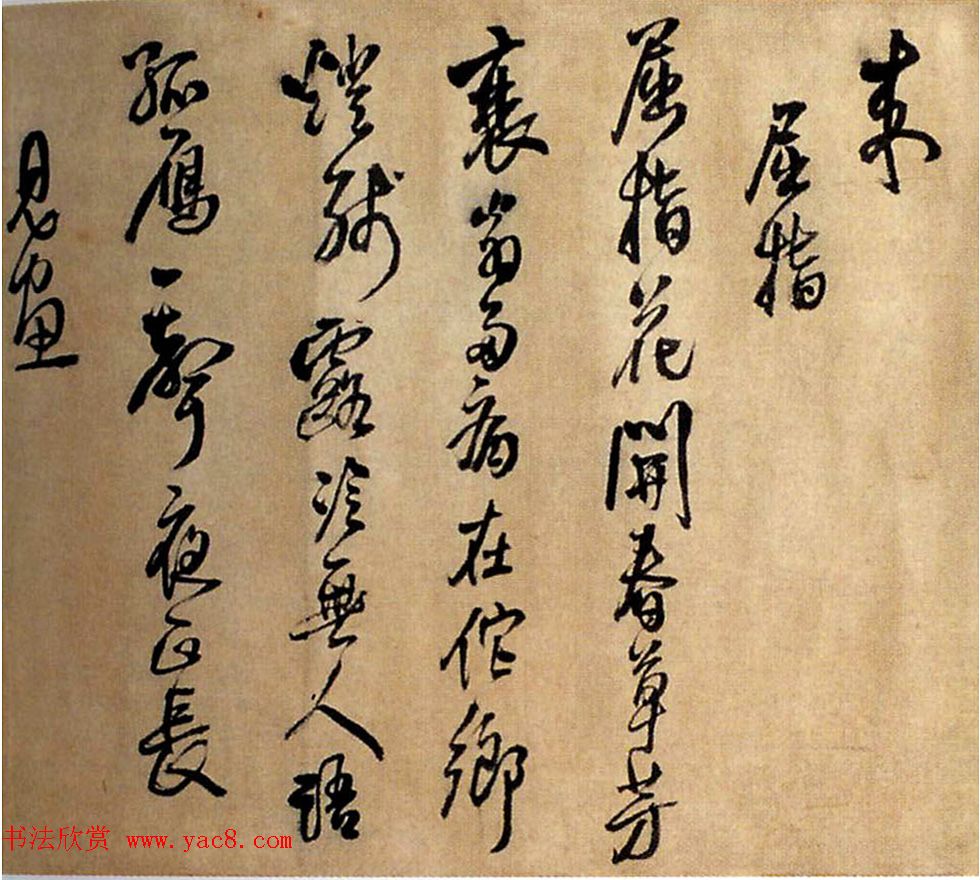 来
屈指
屈指花開春草芳
衰翁多病在佗鄉
燈殘露冷無人語
孤鴈一聲夜正長
見畫
书法欣赏 www.yac8.com